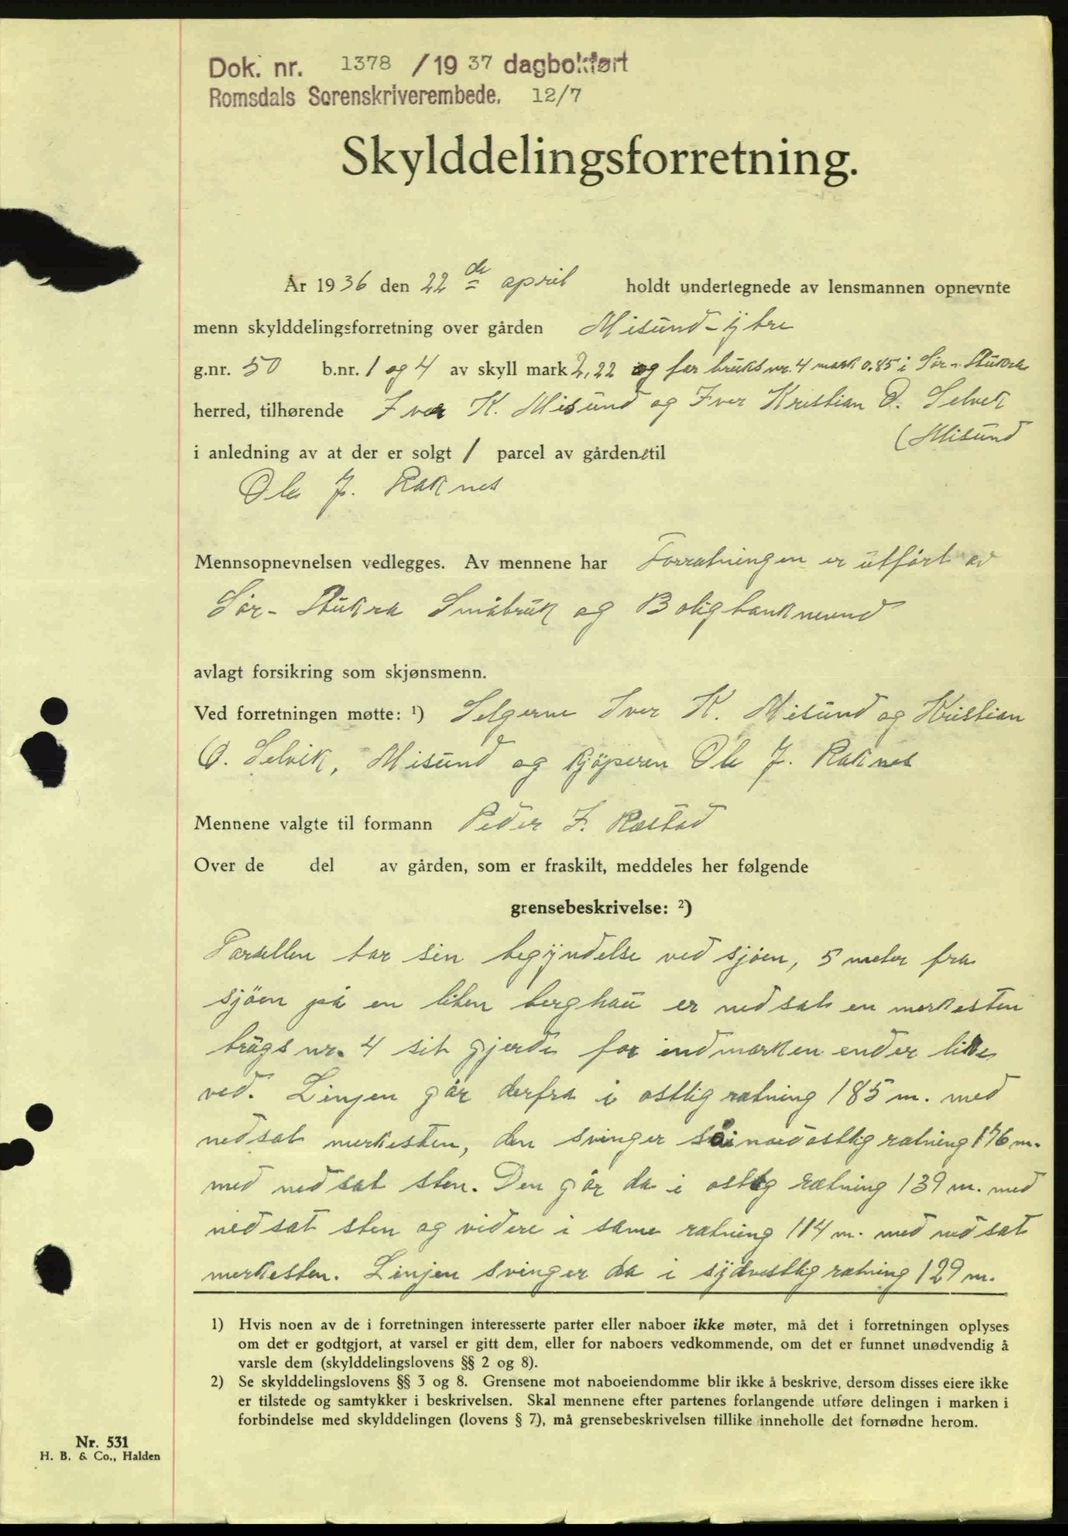 Dok. nr. 1378 / 19 37 dagbokført
Romsdals Sorenskriverembede. 12/7
Skylddelingsforretning.
År 19 36 den 22 de april holdt undertegnede av lensmannen opnevnte
menn skylddelingsforretning over gården Misund-ÿtre
g.nr. 50 b.nr. 1 og 4 av skyll mark 2,22 og for bruks nr. 4 mark 0.85 i Sør-Aukra
herred, tilhørende Iver K. Misund og Iver Kristian O. Selvik
(Misund
i anledning av at der er solgt 1 parcel av gården til
Ole J. Raknes
Mennsopnevnelsen vedlegges. Av mennene har Forretningen er utført av
Sør-Aukra Småbruk og Boligbanknevnd
avlagt forsikring som skjønsmenn.
Ved forretningen møtte: 1) Selgerne Iver K. Misund og Kristian
O. Selvik, Misund og kjøperen Ole J. Raknes
Mennene valgte til formann Peder F. Røstad
Over de del av gården, som er fraskilt, meddeles her følgende
grensebeskrivelse: 2)
Parsellen tar sin begÿndelse ved sjøen, 5 meter fra
sjøen på en liten berghau er nedsat en merkesten
brugs nr. 4 sit gjerde for indmarken ender like
ved. Linjen går derfra i østlig retning 185 m. med
nedsat merkesten, den svinger så i nordøstlig retning 176 m.
med nedsat sten. Den går da i østlig retning 139 m. med
nedsat sten og videre i same retning 114 m. med nedsat
merkesten. Linjen svinger da i sÿdvestlig retning 129 m.
1) Hvis noen av de i forretningen interesserte parter eller naboer ikke møter, må det i forretningen oplyses
om det er godtgjort, at varsel er gitt dem, eller for naboers vedkommende, om det er funnet unødvendig å
varsle dem (skylddelingslovens §§ 2 og 8).
2) Se skylddelingslovens §§ 3 og 8. Grensene mot naboeiendomme blir ikke å beskrive, dersom disses eiere ikke
er tilstede og samtykker i beskrivelsen. Skal mennene efter partenes forlangende utføre delingen i marken i
forbindelse med skylddelingen (lovens § 7), må grensebeskrivelsen tillike inneholle det fornødne herom.
Nr. 531
H. B. & Co., Halden